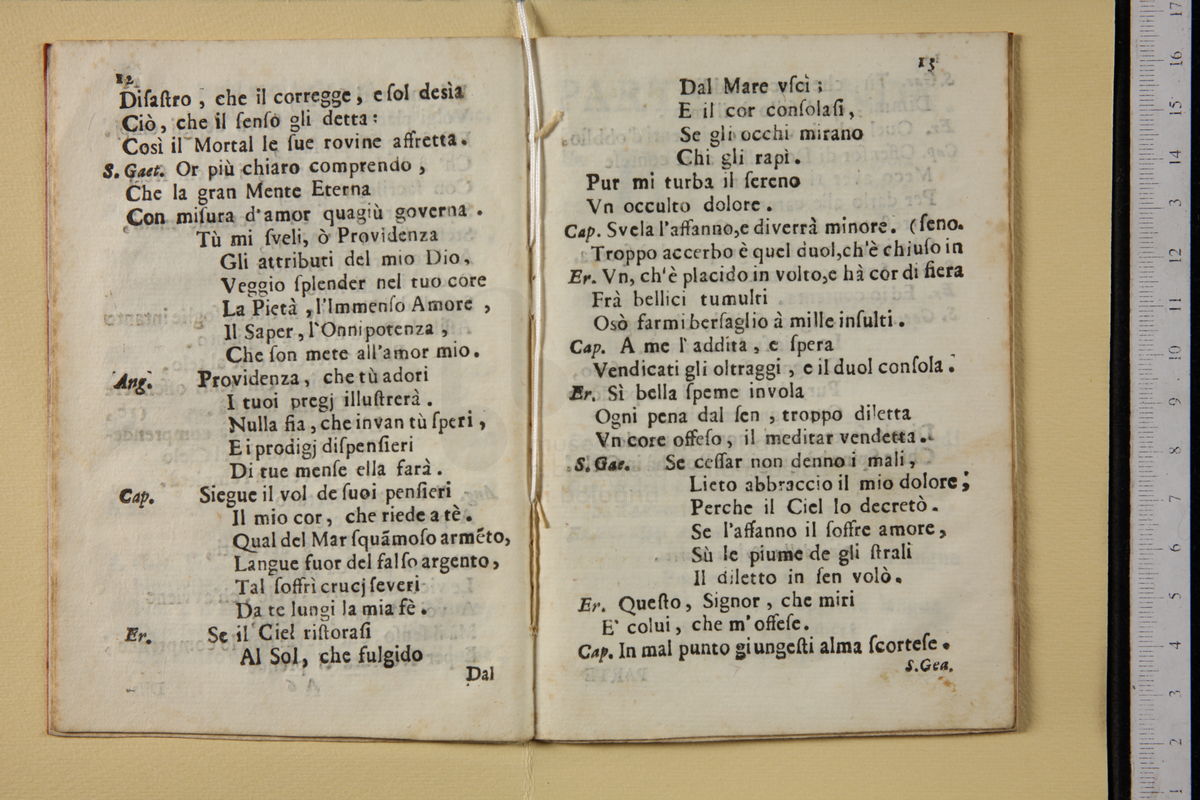 12
Diſaſtro, che il corregge, e ſol desìa
Ciò, che il ſenſo gli detta:
Così il Mortal le ſue rovine affretta.
S. Gaet. Or più chiaro comprendo,
Che la gran Mente Eterna
Con miſura d'amor quagiù governa.
Tù mi ſveli, ò Providenza
Gli attributi del mio Dio,
Veggio ſplender nel tuo core
La Pietà, l'Immenſo Amore,
Il Saper, l'Onnipotenza,
Che ſon mete all'amor mio.
Ang. Providenza, che tù adori
I tuoi pregj illuſtrerà.
Nulla fia, che invan tù ſperi,
E i prodigj diſpenſieri
Di tue menſe ella farà.
Cap. Siegue il vol de ſuoi penſieri
Il mio cor, che riede a tè.
Qual del Mar ſquãmoſo armẽto,
Langue fuor del falſo argento,
Tal ſoffrì crucj ſeveri
Da te lungi la mia fè.
Er. Se il Ciel riſtoraſi
Al Sol, che fulgido
Dal
13
Dal Mare vſcì;
E il cor conſolaſi,
Se gli occhi mirano
Chi gli rapì.
Pur mi turba il ſereno
Vn occulto dolore.
Cap. Svela l'affanno, e diverrà minore. (ſeno.
Troppo accerbo è quel duol, ch'è chiuſo in
Er. Vn, ch'è placido in volto, e hà cor di fiera
Frà bellici tumulti
Osò farmi berſaglio à mille inſulti.
Cap. A me l'addita, e ſpera
Vendicati gli oltraggi, e il duol conſola.
Er. Sì bella ſpeme invola
Ogni pena dal ſen, troppo diletta
Vn core offeſo, il meditar vendetta.
S. Gae. Se ceſſar non denno i mali,
Lieto abbraccio il mio dolore;
Perche il Ciel lo decretò.
Se l'affanno il ſoffre amore,
Sù le piume de gli ſtrali
Il diletto in ſen volò.
Er. Queſto, Signor, che miri
E' colui, che m'offeſe.
Cap. In mal punto giungeſti alma ſcorteſe.
S. Gea.